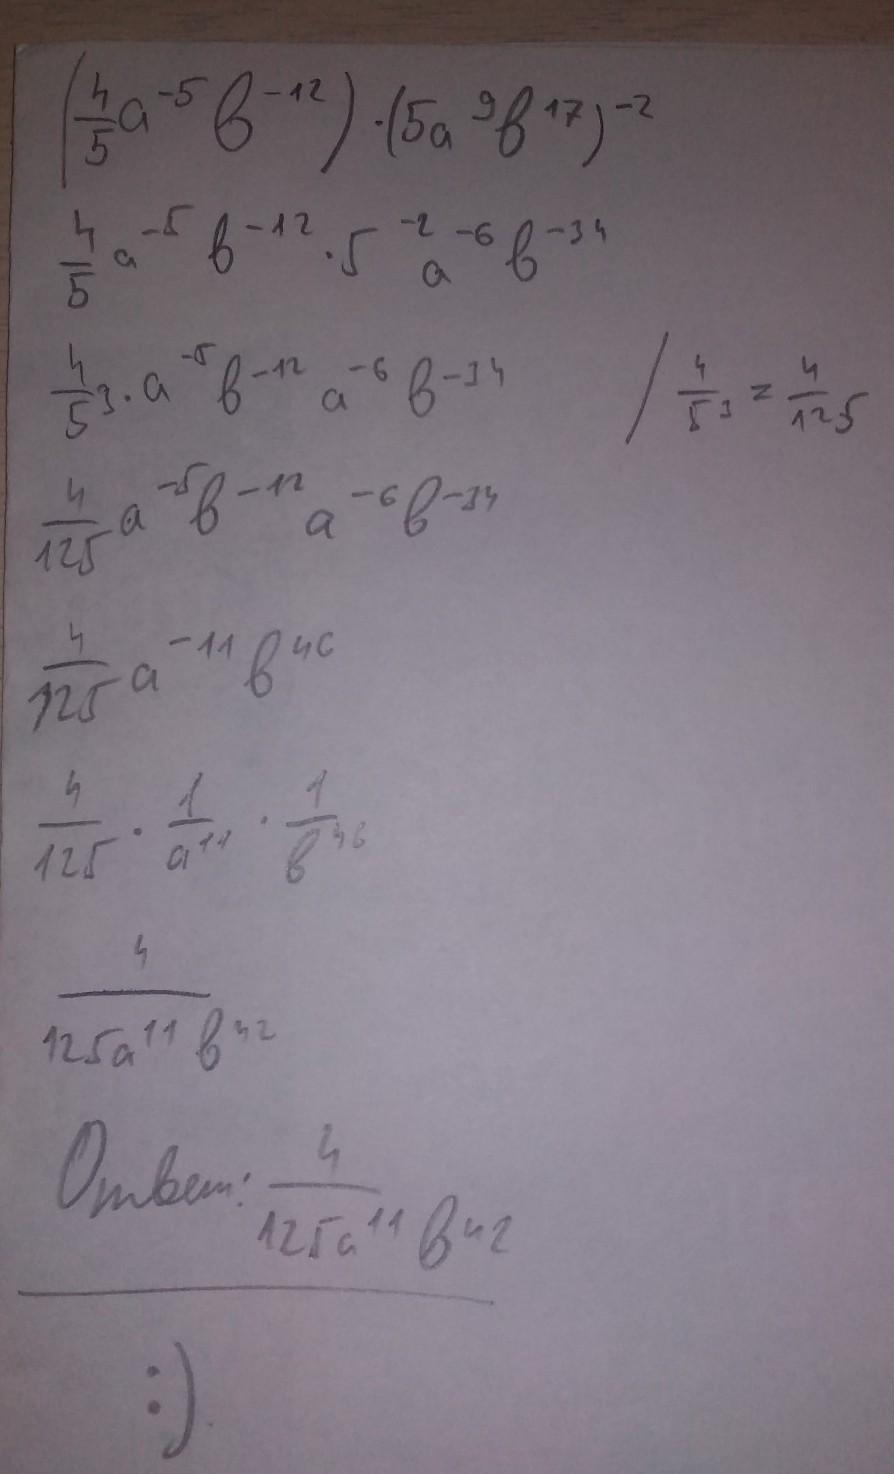 (4/5 a⁻⁵ в⁻¹²) · (5a⁹в¹⁷)⁻²
4/5 a⁻⁵ в⁻¹² · 5⁻² a⁻⁶ в⁻³⁴
4/5³ · a⁻⁵ в⁻¹² a⁻⁶ в⁻³⁴ / 4/5³ = 4/125
4/125 a⁻⁵ в⁻¹² a⁻⁶ в⁻³⁴
4/125 a⁻¹¹ в⁴⁶
4/125 · 1/a¹¹ · 1/в⁴⁶
4/125a¹¹ в⁴²
Ответ: 4/125a¹¹ в⁴²
:)